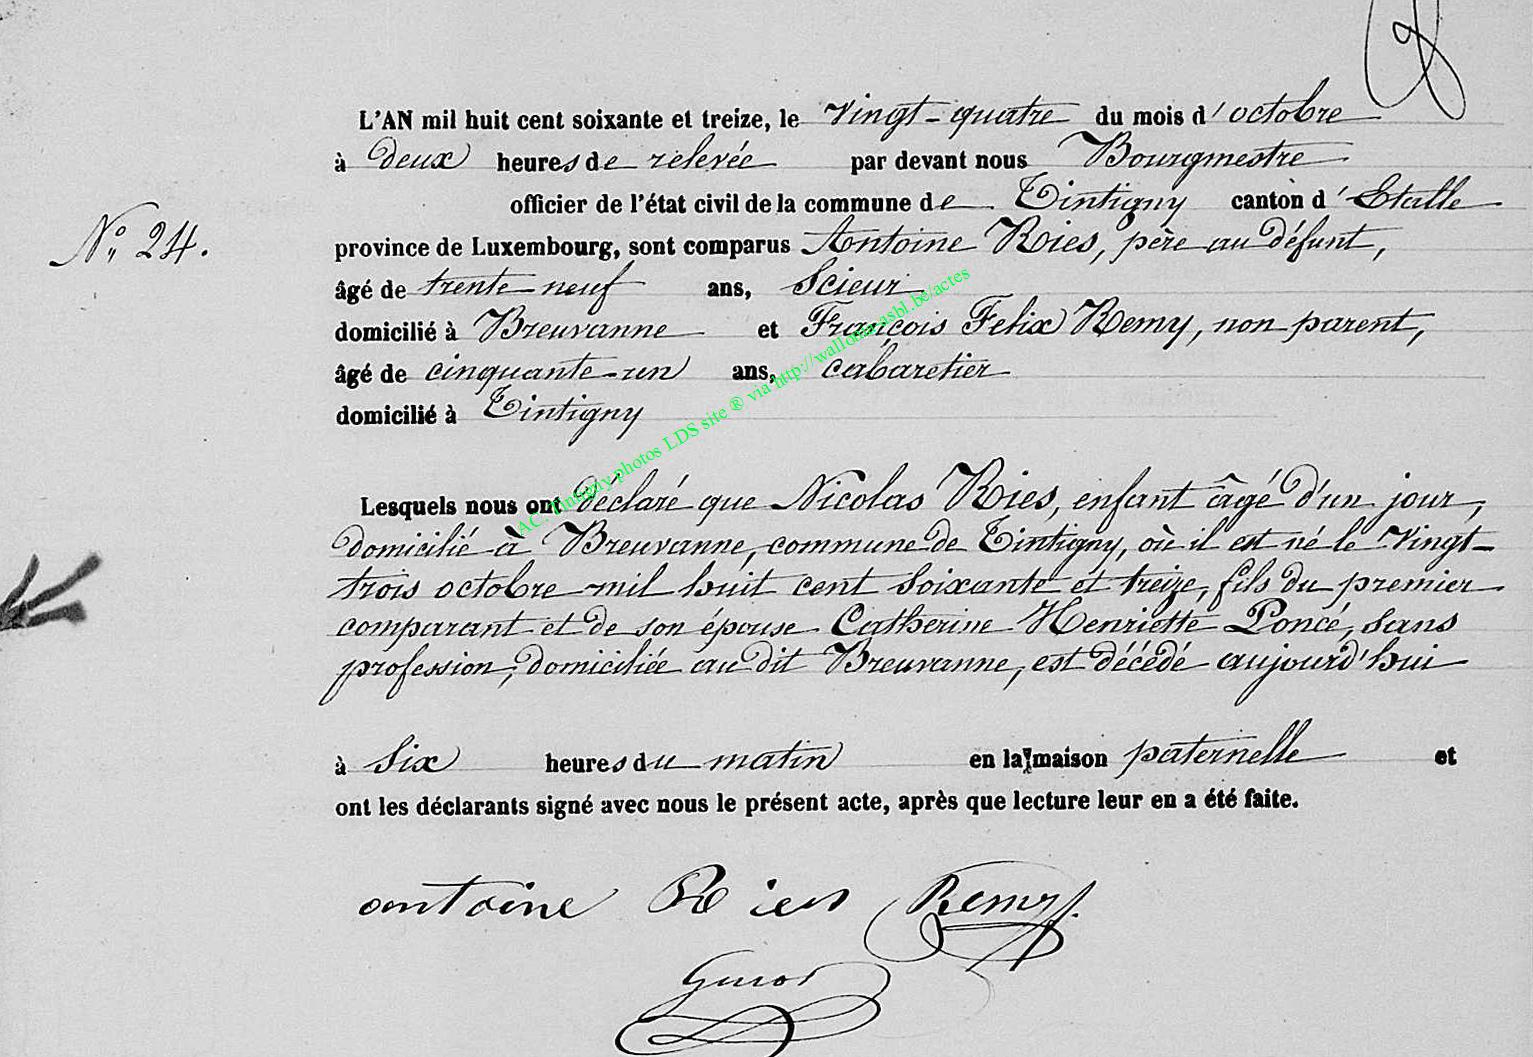 L'AN mil huit cent soixante et treize, le vingt-quatre du mois d'octobre
à deux heures de relevée par devant nous Bourgmestre
officier de l'état civil de la commune de Tintigny canton d'Etalle
N° 24.
province de Luxembourg, sont comparus Antoine Ries, père au défunt,
âgé de trente-neuf ans, Scieur
domicilié à Breuvanne et François Felix Remy, non parent,
âgé de cinquante-un ans, cabaretier
domicilié à Tintigny
AC. Tintigny photos LDS site ® via http://wallonia-asbl.be/actes
Lesquels nous ont déclaré que Nicolas Ries, enfant âgé d'un jour,
domicilié à Breuvanne, commune de Tintigny, où il est né le vingt-
trois octobre mil huit cent soixante et treize, fils du premier
comparant et de son épouse Catherine Henriette Poncé, sans
profession, domiciliée au dit Breuvanne, est décédé aujourd'hui
à six heures du matin en la maison paternelle et
ont les déclarants signé avec nous le présent acte, après que lecture leur en a été faite.
antoine Ries Remy